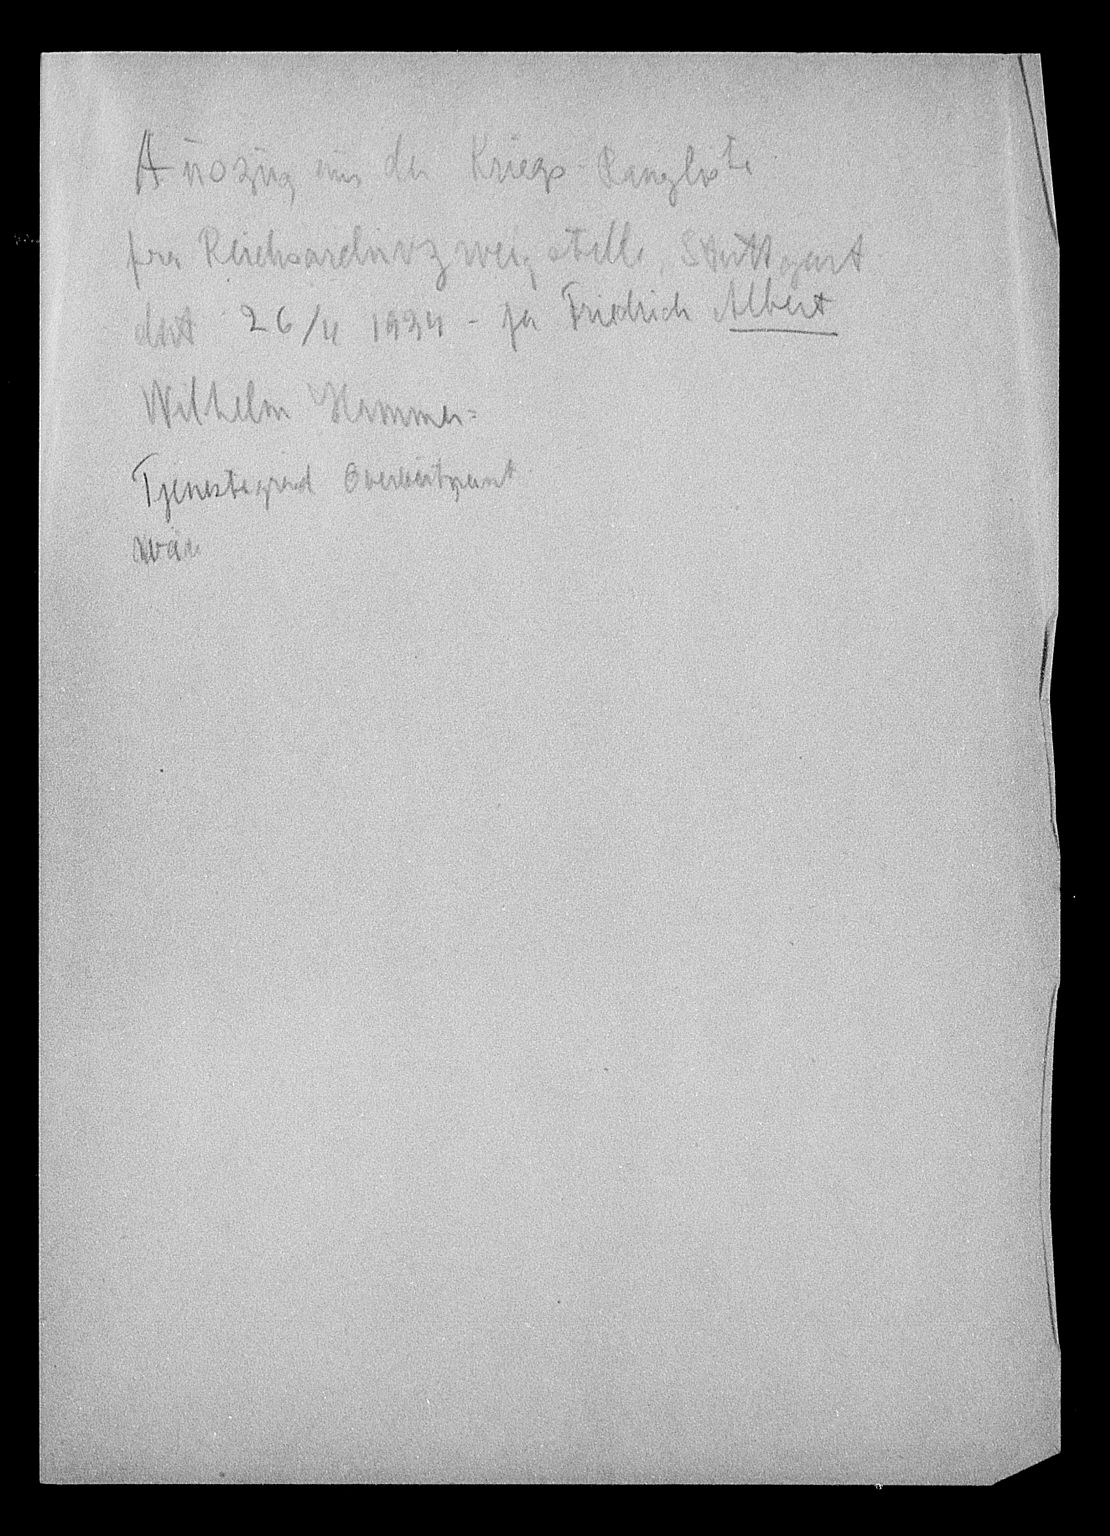 Auszug aus der Kriegs Rangliste
fra Reichsarchivzweigstelle, Stuttgart
dat 26/4 1934 - for Friedrich Albert
Wilhelm Hammer=
Tjenestegrad Oberleutnant